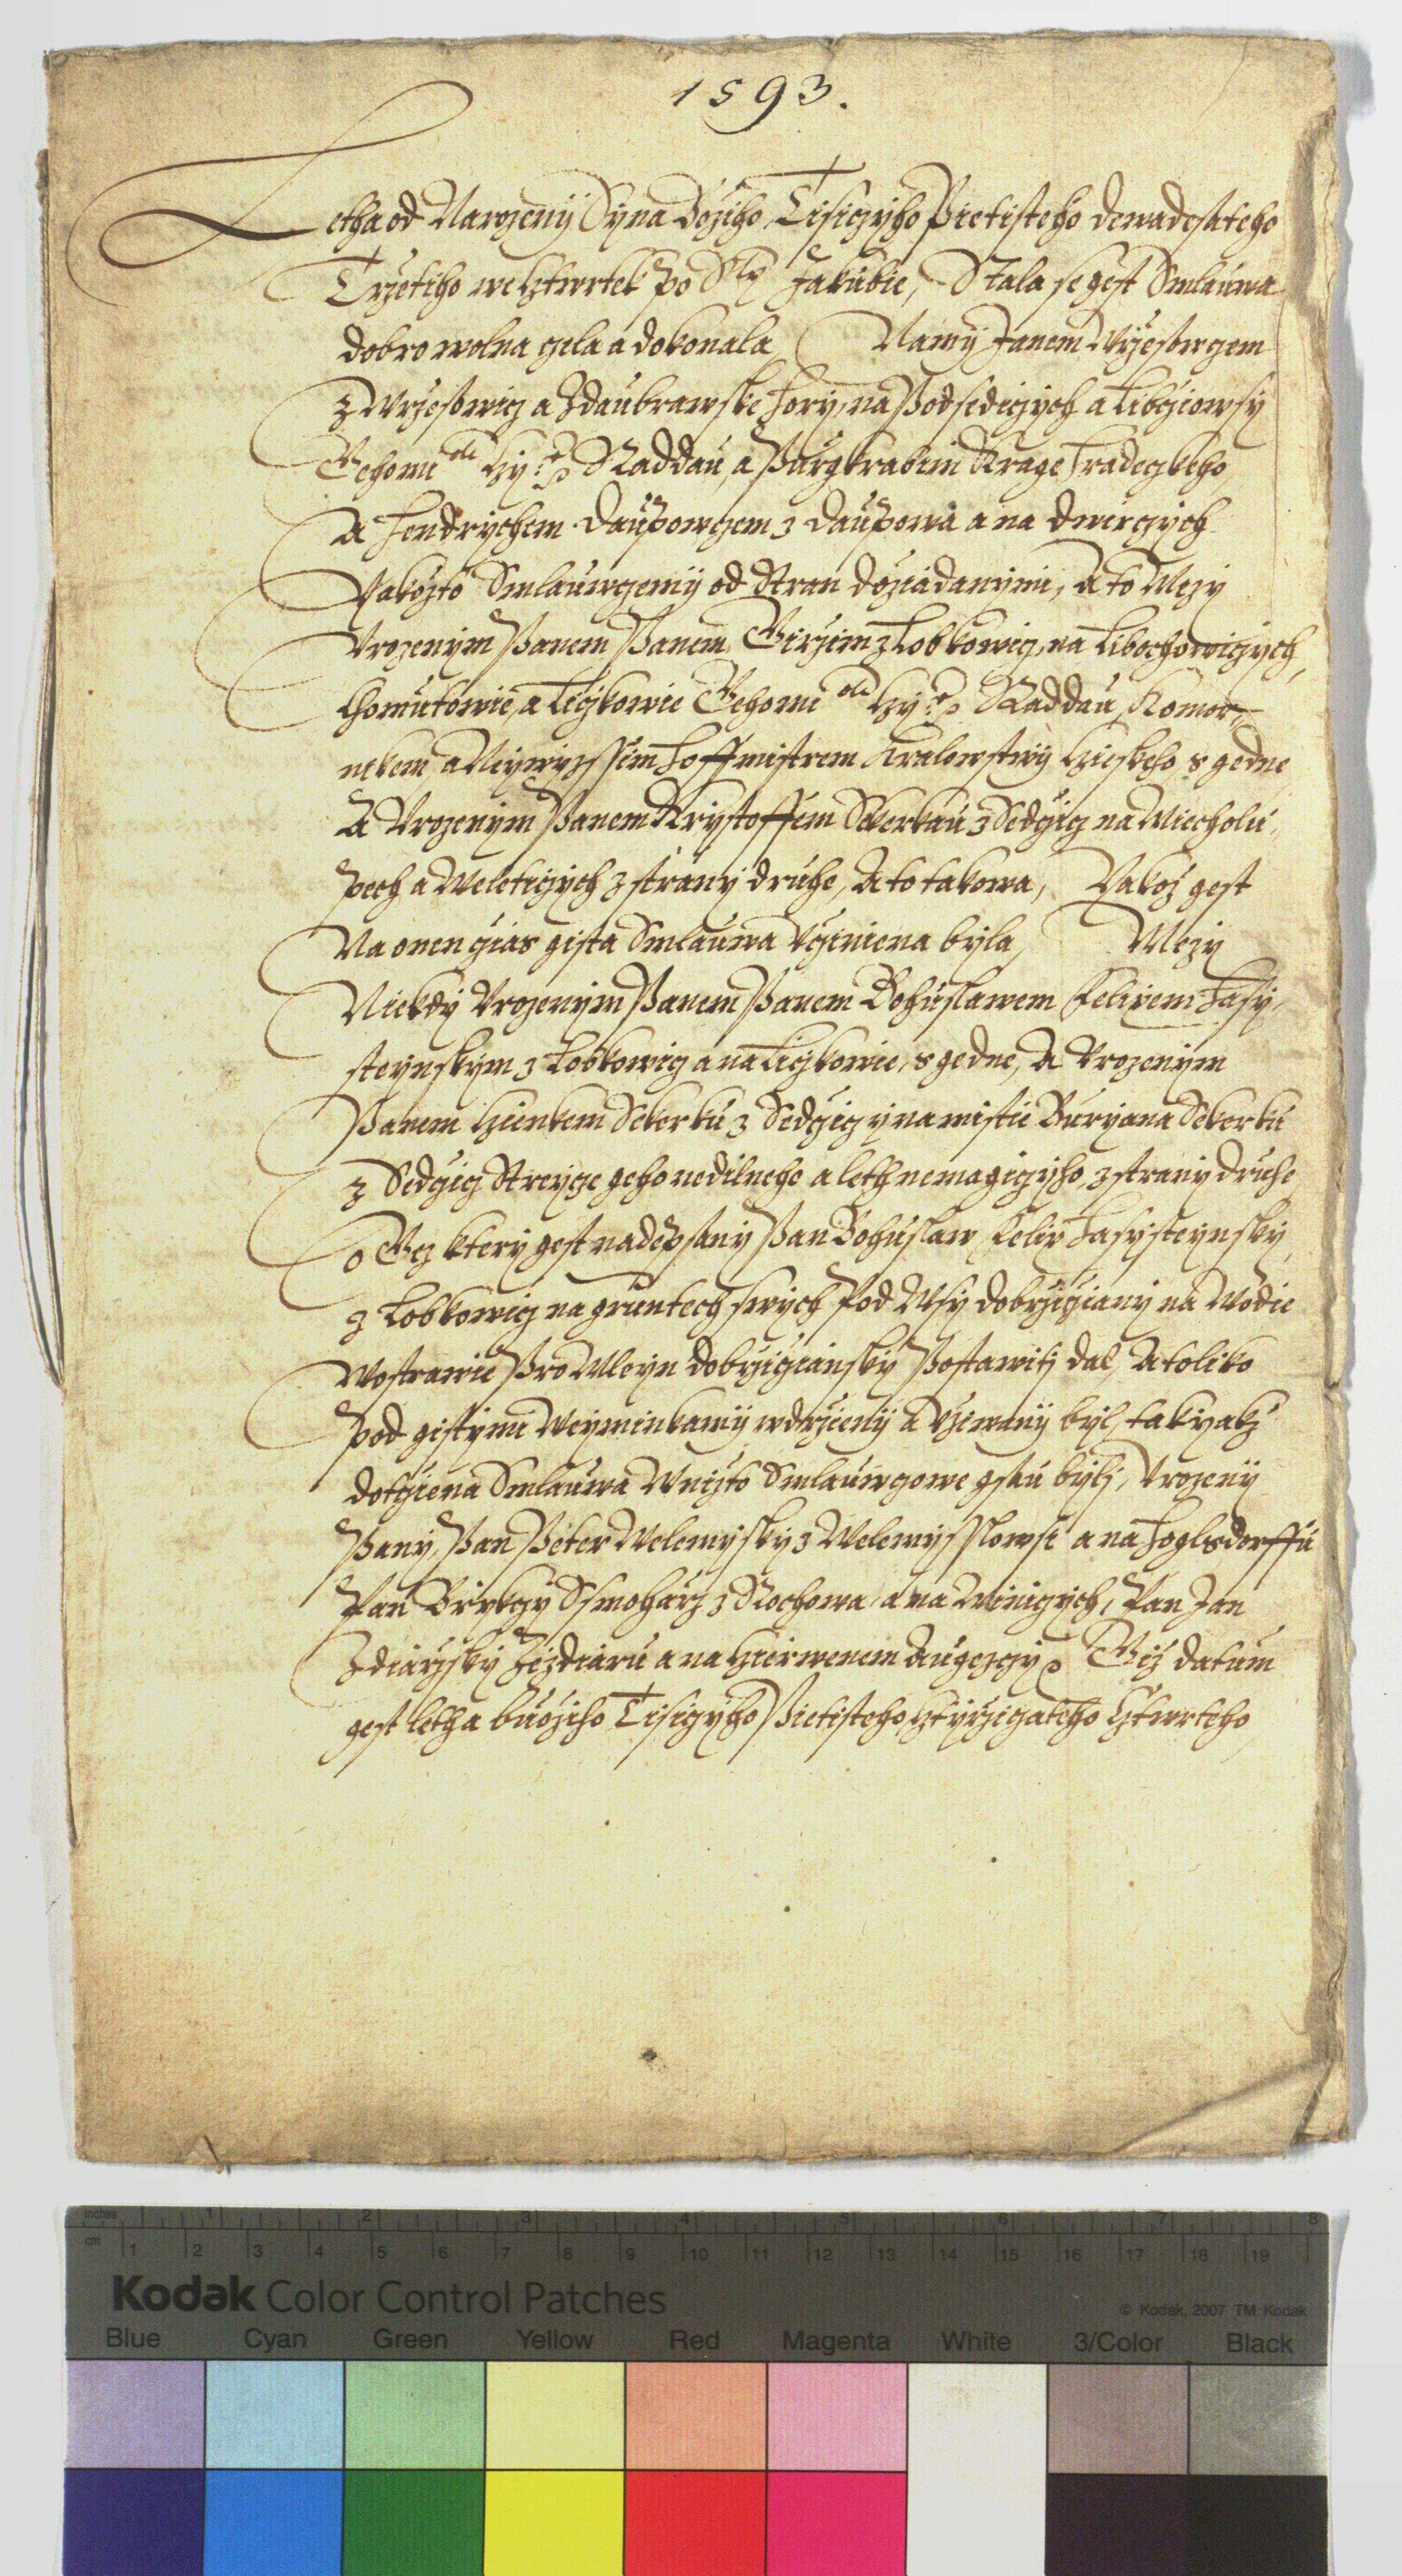 1593.
Letha od Narozenij Syna Božiho, Tisiczyho Pietisteho dewadesateho
Trzetiho we Cztwrtek po Stº Jakubie, Stala se gest Smlauwa
dobrowolna czela a dokonala Namij Janem Wrzesowczem
z Wrzesowicz a z daubrawske Hory, na Podsediczych a Libcziowsy
Gehomti Czy: Raddau, a Purgkrabim Krage Hradeczkeho,
A Hendrychem Daupowczem z Daupowa a na dwirczych
Yakožto Smlauwczemij od Stran dožiadanymi, A to Mezy
Vrozenym Panem Panem Girzim z Lobkowicz, na Libochowiczych,
Chomutowie, a Liczkowie Gehomti Czy: Raddau, Komor-
nikem, a Neywyzssim Hoffmistrem Kralowstwij Czieskeho s gedne
A Vrozenym Panem Krystoffem Sekerkau z Sedczicz na Miecholu-
pech a Weleticzych z strany druhe, A to takowa, Yakož gest
Na onen czias gista Smlauwa Vcziniena byla, Mezy
Niekdy Vrozenym Panem Panem Bohuslawem Felixem Hasy-
steynskym z Lobkowicz a na Liczkowie, s gedne, A Vrozenym
Panem Czienkem Sekerku z Sedczicz y na mistie Buryana Sekerku
z Sedczicz Streycze geho nedilneho a leth nemagiczyho, z strany druhe
o Gez ktery gest nadepsany Pan Bohuslaw Felix Hasysteynsky
z Lobkowicz na gruntech swych Pod Wsy dobrzicziany na Wodie
Wostrawie Pro Mleyn dobrzicziansky Postawiti dal, A toliko
pod gistymi Weyminkamij w drzienij a Vžiwanij byl, tak yakž
dotcziena Smlauwa W nižto Smlauwczowe gsau byli, Vrozenij
Pany, Pan Peter Welemysky z Welemysslowsi a na Hoglsdorffu
Pan Brykczy Ssmoharz z Rochowa, a na Winiczych, Pan Jan
Zdiarzsky ze Zdiaru a na Czierwenem Augezczy Giž datum
gest letha buožiho Tisiczyho Pietisteho Cztyrziczateho Cztwrteho
inches
1 2 3 4 5 6 7 8
cm
1 2 3 4 5 6 7 8 9 10 11 12 13 14 15 16 17 18 19
Kodak Color Control Patches
© Kodak, 2007 TM: Kodak
Blue Cyan Green Yellow Red Magenta White 3/Color Black